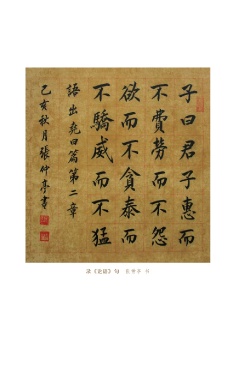 子曰君子惠而
不費勞而不怨
欲而不貪泰而
不驕威而不猛
語出堯曰篇第二章
己亥秋月張仲亭書
录《论语》句 张仲亭 书